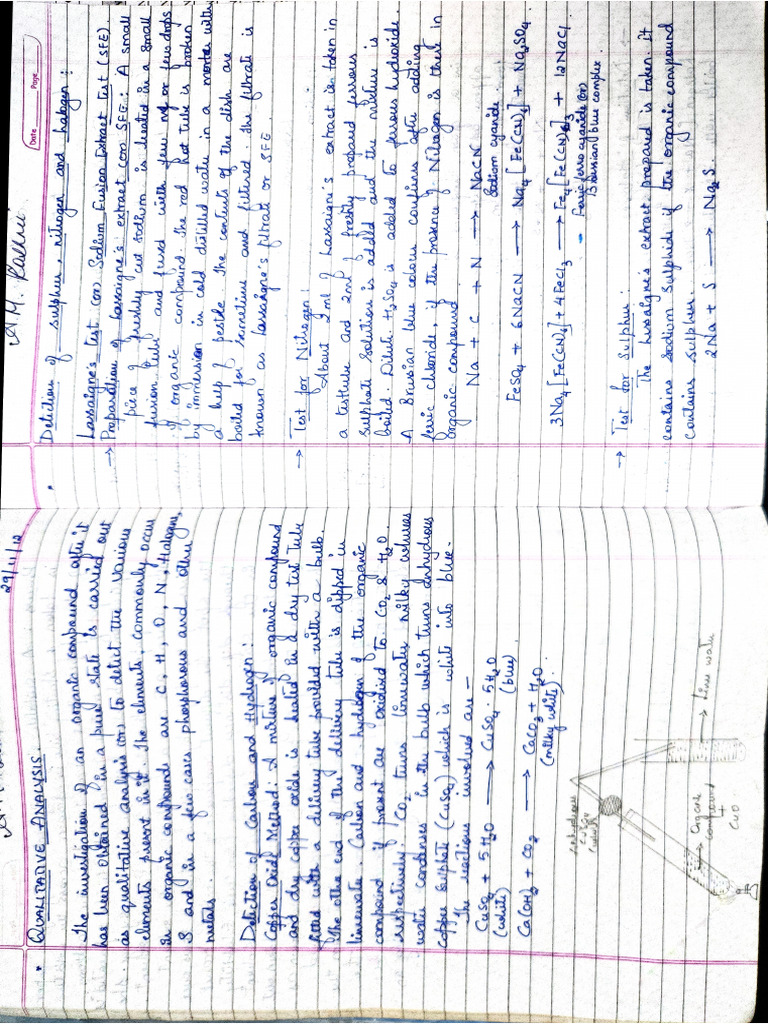 29/11/12
* QUALITATIVE ANALYSIS.
The investigation of an organic compound after it
has been obtained in a pure state is carried out
as qualitative analysis to detect the various
elements present in it. The elements, commonly occur
in organic compounds are C, H, O, N, Halogens,
S and in a few cases phosphorous and other
metals.
Detection of Carbon and Hydrogen:
Copper Oxide Method: A mixture of organic compound
and dry copper oxide is heated in a dry test tube
fitted with a delivery tube provided with a bulb.
The other end of the delivery tube is dipped in
limewater. Carbon and hydrogen of the organic
compound if present are oxidised to CO2 & H2O
respectively. CO2 turns limewater milky whereas
water condenses in the bulb which turns anhydrous
copper sulphate (CuSO4) which is white into blue.
The reactions involved are –
CuSO4 + 5H2O → CuSO4 · 5H2O
(white) (blue)
Ca(OH)2 + CO2 → CaCO3 + H2O
(milky white)
anhydrous
CuSO4
(white)
Organic
compound
+
CuO
Lime water
Date Page
* Detection of sulphur, nitrogen and halogen:
Lassaigne's Test (or) Sodium Fusion Extract Test (SFE)
→ Preparation of Lassaigne's extract (or) SFE: A small
piece of freshly cut sodium is heated in a small
fusion tube and fused with few mg or few drops
of organic compound. The red hot tube is broken
by immersion in cold distilled water in a mortar with
a help of pestle. The contents of the dish are
boiled for sometime and filtered. The filtrate is
known as Lassaigne's filtrate or SFE.
→ Test for Nitrogen:
About 2ml of Lassaigne's extract is taken in
a testtube and 2ml of freshly prepared ferrous
sulphate solution is added and the mixture is
boiled. Dilute H2SO4 is added to ferrous hydroxide.
A Brusian blue colour confirms after adding
ferric chloride, if the presence of Nitrogen is there in
organic compound
Na + C + N → NaCN
Sodium cyanide.
FeSO4 + 6NaCN → Na4[Fe(CN)6] + Na2SO4
3Na4[Fe(CN)6] + 4FeCl3 → Fe4[Fe(CN)6]3 + 12NaCl
Ferric ferro cyanide (or)
Brussian blue complex.
→ Test for Sulphur:
The Lassaigne's extract prepared is taken. It
contains Sodium Sulphide if the organic compound
contains sulphur.
2Na + S → Na2S.